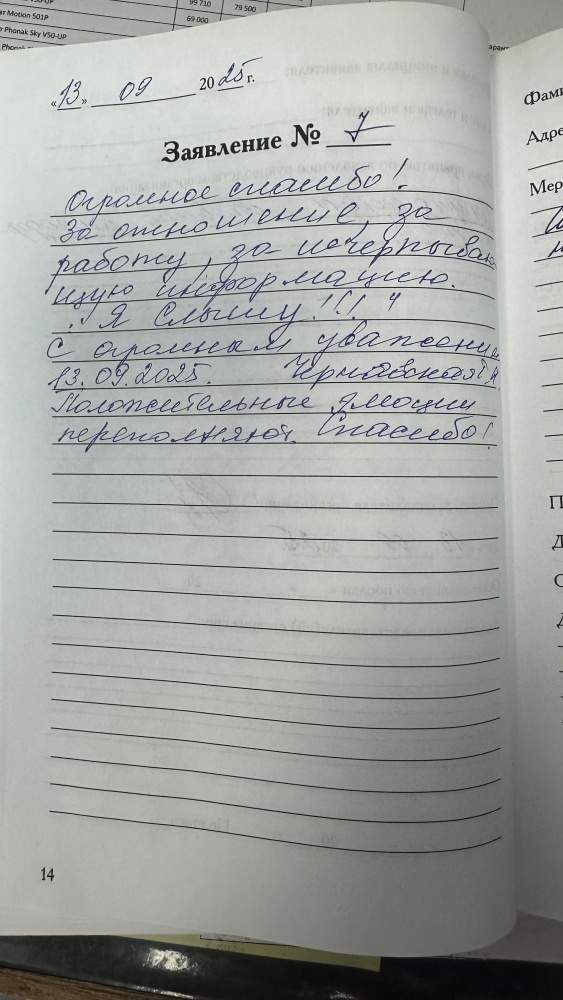 99 710 79 500
Motion 501P 69 000
Phonak Sky V50-UP
«13» 09 2025 г.
Заявление № 7
Огромное спасибо!
За отношение, за
работу, за исчерпываю
щую информацию.
Я слышу!!!
С огромным уважением
13.09.2025.
Положительные эмоции
переполняют. Спасибо!
14
Фами
Адре
Мер
П
Д
С
Д